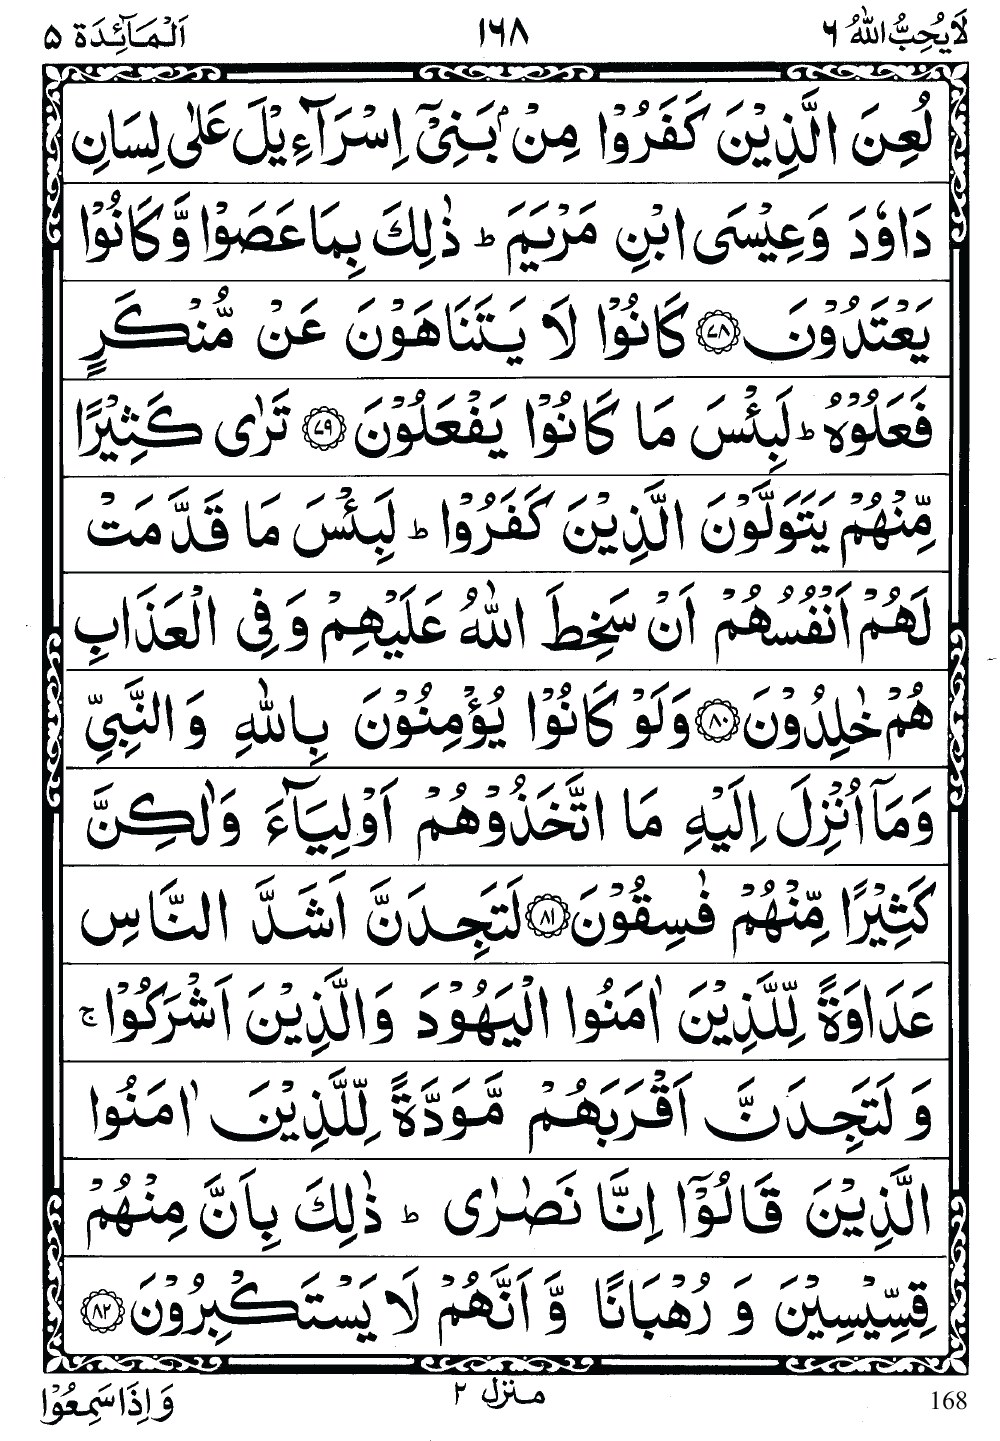 لَا يُحِبُّ اللّٰهُ ۶ ۱۶۸ اَلْمَآئِدَة ۵
لُعِنَ الَّذِيْنَ كَفَرُوْا مِنْۢ بَنِيْۤ اِسْرَآءِيْلَ عَلٰى لِسَانِ
دَاوٗدَ وَعِيْسَى ابْنِ مَرْيَمَ ؕ ذٰلِكَ بِمَا عَصَوْا وَّ كَانُوْا
يَعْتَدُوْنَ ۷۸ كَانُوْا لَا يَتَنَاهَوْنَ عَنْ مُّنْكَرٍ
فَعَلُوْهُ ؕ لَبِئْسَ مَا كَانُوْا يَفْعَلُوْنَ ۷۹ تَرٰى كَثِيْرًا
مِّنْهُمْ يَتَوَلَّوْنَ الَّذِيْنَ كَفَرُوْا ؕ لَبِئْسَ مَا قَدَّمَتْ
لَهُمْ اَنْفُسُهُمْ اَنْ سَخِطَ اللّٰهُ عَلَيْهِمْ وَ فِي الْعَذَابِ
هُمْ خٰلِدُوْنَ ۸۰ وَلَوْ كَانُوْا يُؤْمِنُوْنَ بِاللّٰهِ وَ النَّبِيِّ
وَمَاۤ اُنْزِلَ اِلَيْهِ مَا اتَّخَذُوْهُمْ اَوْلِيَآءَ وَلٰكِنَّ
كَثِيْرًا مِّنْهُمْ فٰسِقُوْنَ ۸۱ لَتَجِدَنَّ اَشَدَّ النَّاسِ
عَدَاوَةً لِّلَّذِيْنَ اٰمَنُوا الْيَهُوْدَ وَالَّذِيْنَ اَشْرَكُوْا ۚ
وَ لَتَجِدَنَّ اَقْرَبَهُمْ مَّوَدَّةً لِّلَّذِيْنَ اٰمَنُوا
الَّذِيْنَ قَالُوْۤا اِنَّا نَصٰرٰى ؕ ذٰلِكَ بِاَنَّ مِنْهُمْ
قِسِّيْسِيْنَ وَ رُهْبَانًا وَّ اَنَّهُمْ لَا يَسْتَكْبِرُوْنَ ۸۲
168 منزل ۲ وَاِذَا سَمِعُوْا